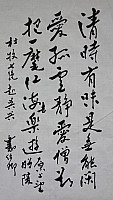 清時有味是無能閑
愛孤雲靜愛僧欲
把一麾江海去樂遊原上望昭陵
杜牧